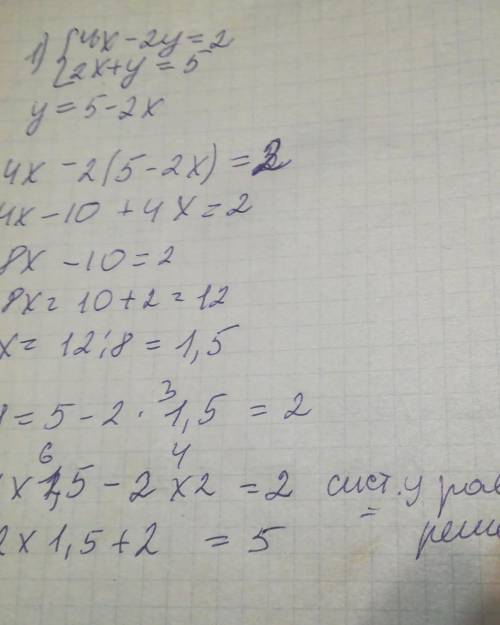 1) { 4x - 2y = 2
2x + y = 5
y = 5 - 2x
4x - 2(5 - 2x) = 2
4x - 10 + 4x = 2
8x - 10 = 2
8x = 10 + 2 = 12
x = 12 : 8 = 1,5
3
= 5 - 2 · 1,5 = 2
6 4
x 1,5 - 2 x 2 = 2 сист. у рав
2 x 1,5 + 2 = 5 = реше